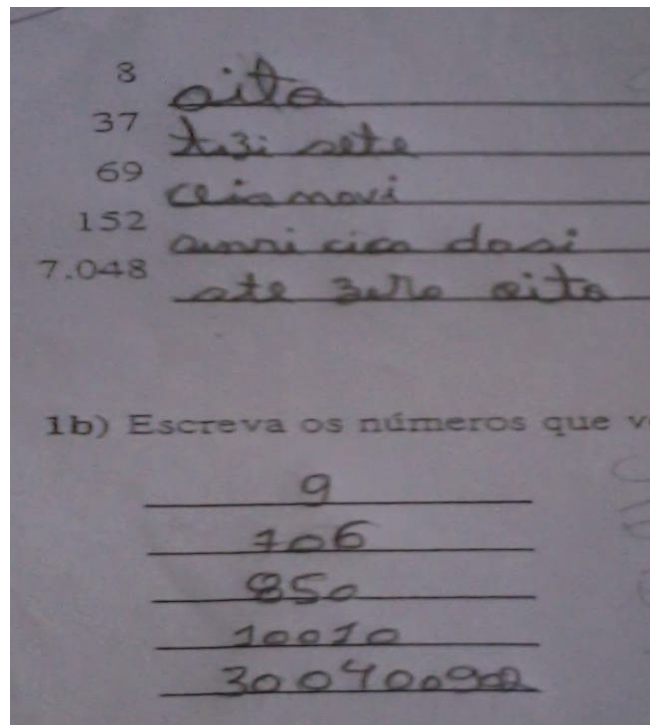 8 oito
37 trizi sete
69 ceis novi
152 cico dosi
7.048 sete zero oito
1b) Escreva os números que v
9
706
850
10010
300400902